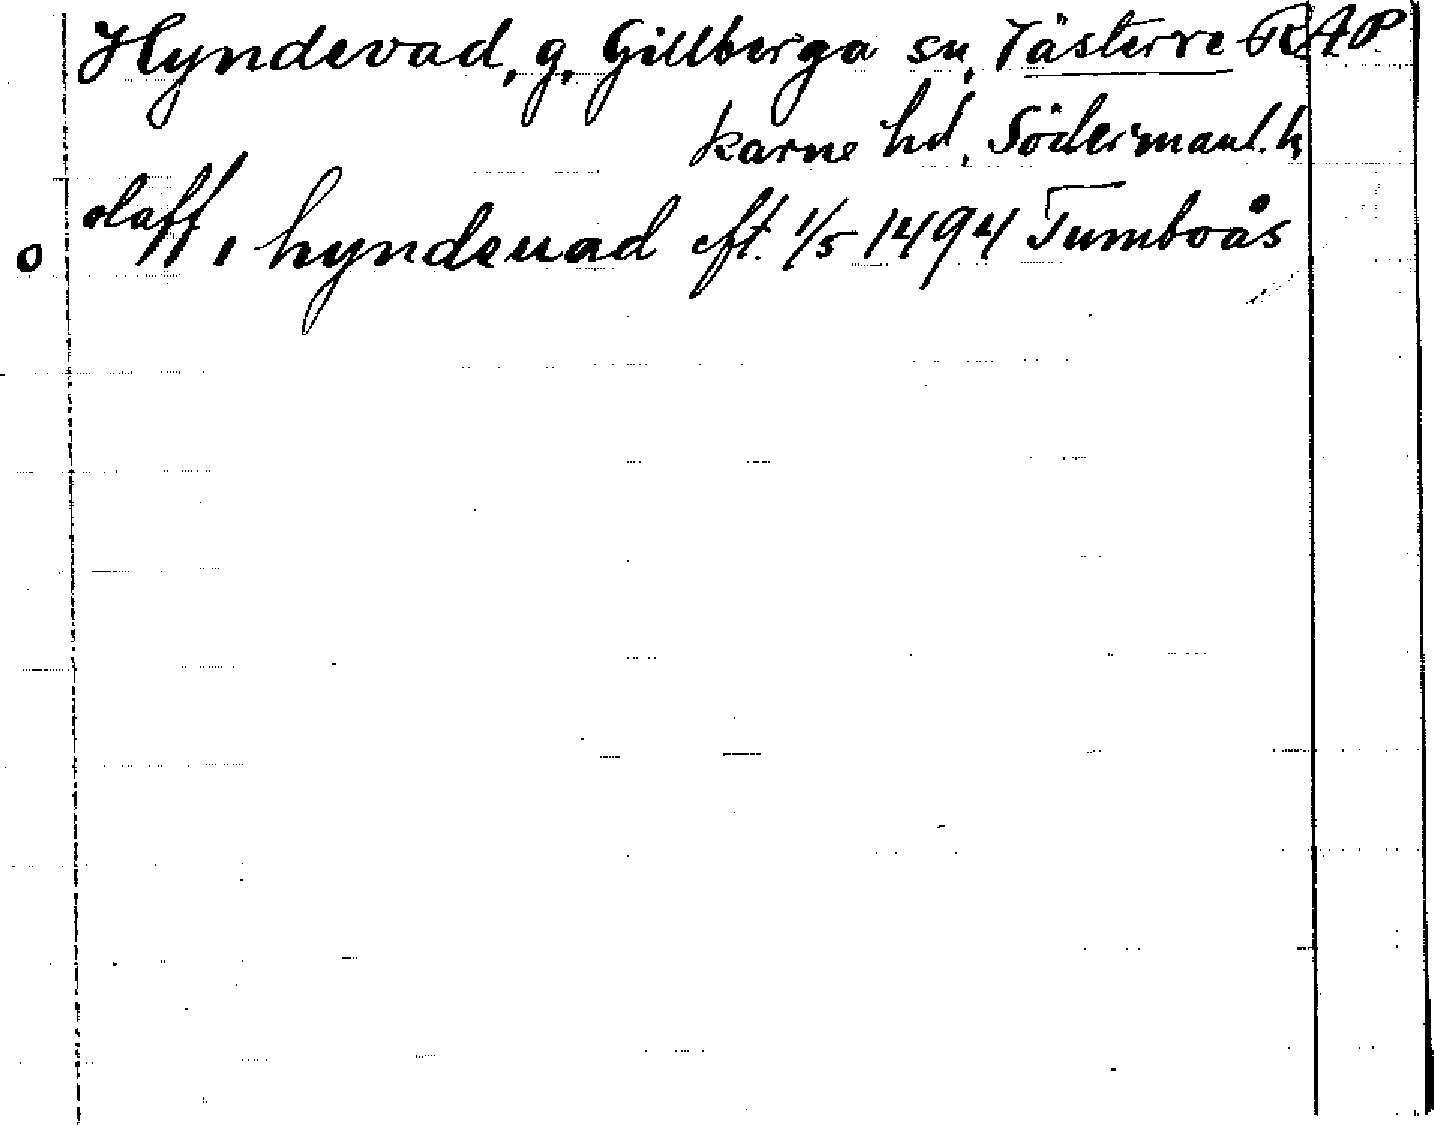 Hyndevad, g, Gillberga sn, Västerre RAP
karne hd, Södermanl. h
o olaff i hyndeuad eft. 1/5 1494 Tumboås